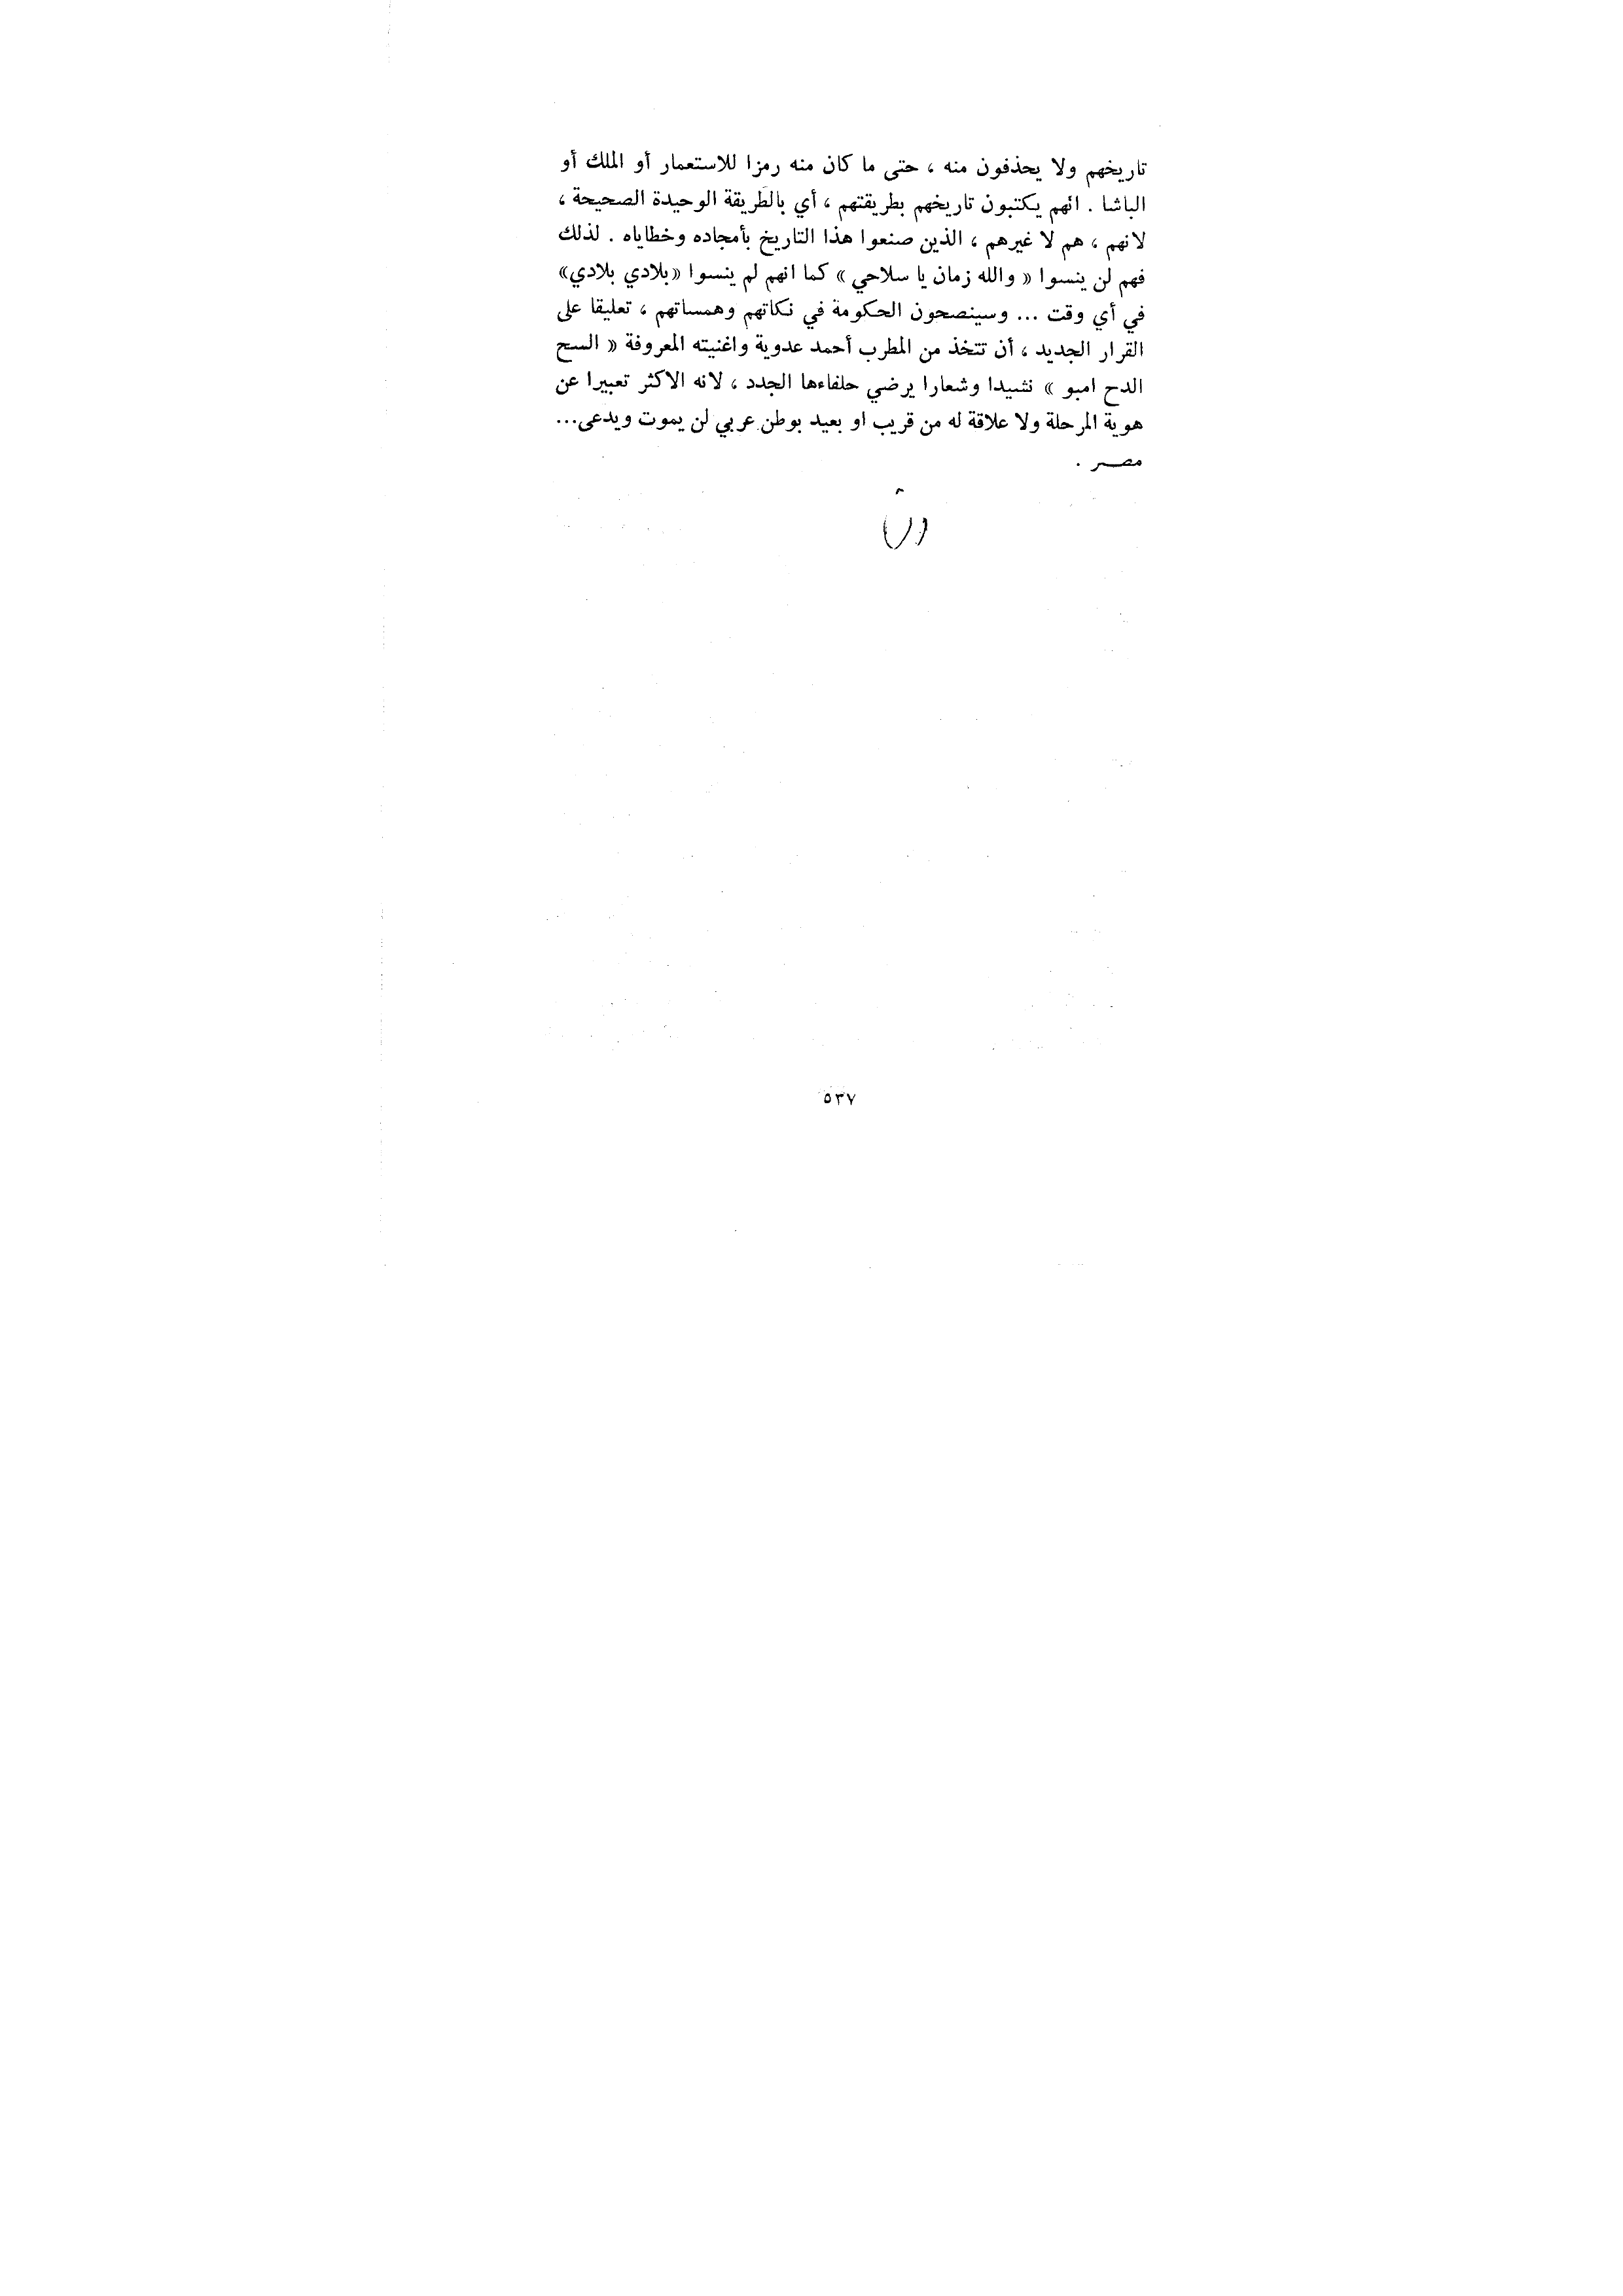 تاريخهم ولا يحذفون منه ، حتى ما كان منه رمزا للاستعمار أو الملك أو
الباشا . انهم يكتبون تاريخهم بطريقتهم ، أي بالطريقة الوحيدة الصحيحة ،
لانهم ، هم لا غيرهم ، الذين صنعوا هذا التاريخ بأمجاده وخطاياه . لذلك
فهم لن ينسوا « والله زمان يا سلاحي » كما انهم لم ينسوا «بلادي بلادي»
في أي وقت ... وسينصحون الحكومة في نكاتهم وهمساتهم ، تعليقا على
القرار الجديد ، أن تتخذ من المطرب أحمد عدوية واغنيته المعروفة « السح
الدح امبو » نشيدا وشعارا يرضي حلفاءها الجدد ، لانه الاكثر تعبيرا عن
هوية المرحلة ولا علاقة له من قريب او بعيد بوطن عربي لن يموت ويدعى...
مصر .
٥٣٧